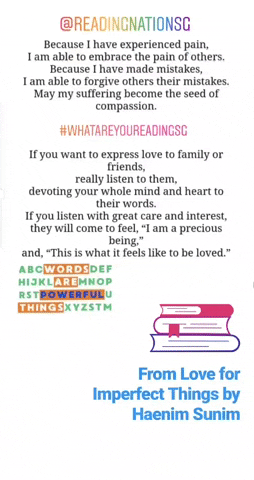 @READINGNATIONSG
Because I have experienced pain,
I am able to embrace the pain of others.
Because I have made mistakes,
I am able to forgive others their mistakes.
May my suffering become the seed of
compassion.
#WHATAREYOUREADINGSG
If you want to express love to family or
friends,
really listen to them,
devoting your whole mind and heart to
their words.
If you listen with great care and interest,
they will come to feel, “I am a precious
being,”
and, “This is what it feels like to be loved.”
ABCWORDSDEF
HIJKLAREMNOP
RSTPOWERFULU
THINGSXYZSTM
From Love for
Imperfect Things by
Haenim Sunim